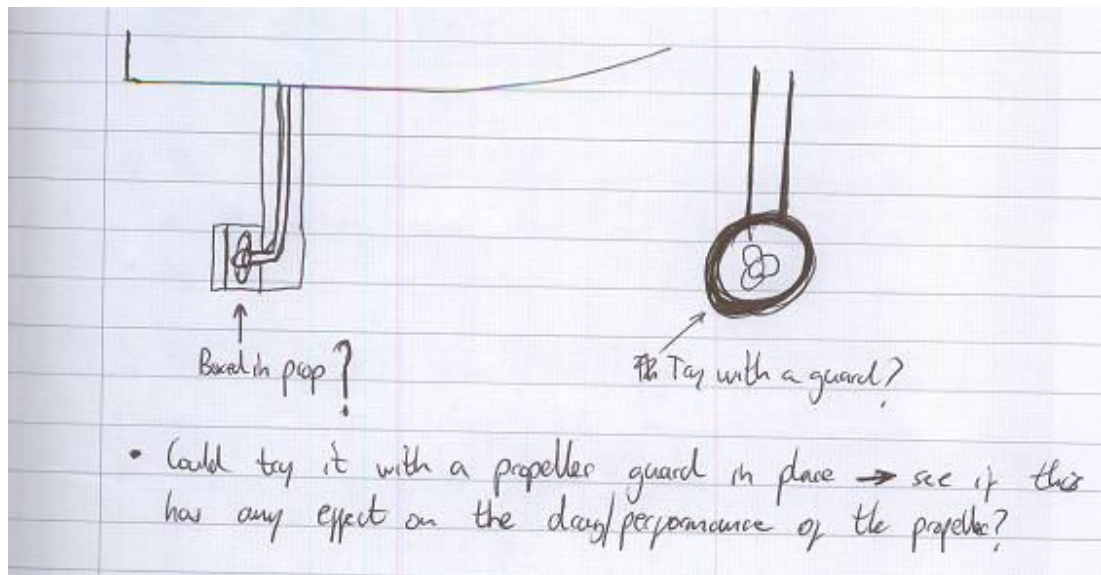 Boxed in prop?
Try with a guard?
• Could try it with a propeller guard in place → see if this
has any effect on the drag/performance of the propeller?